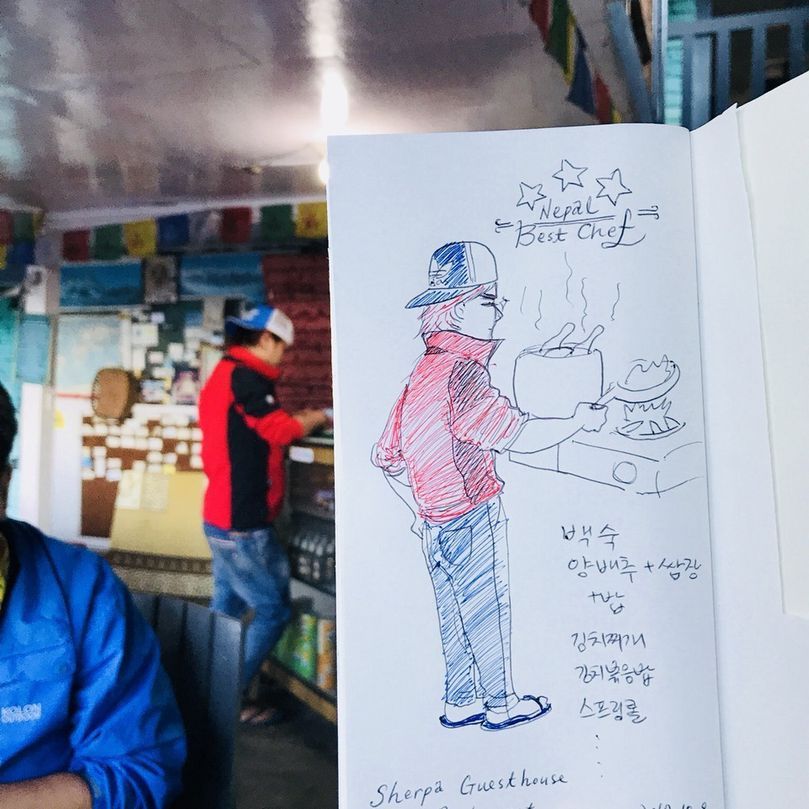 Nepal
Best Chef
백숙
양배추 + 쌈장
+밥
김치찌개
김치볶음밥
스프링롤
Sherpa Guesthouse
KOLON